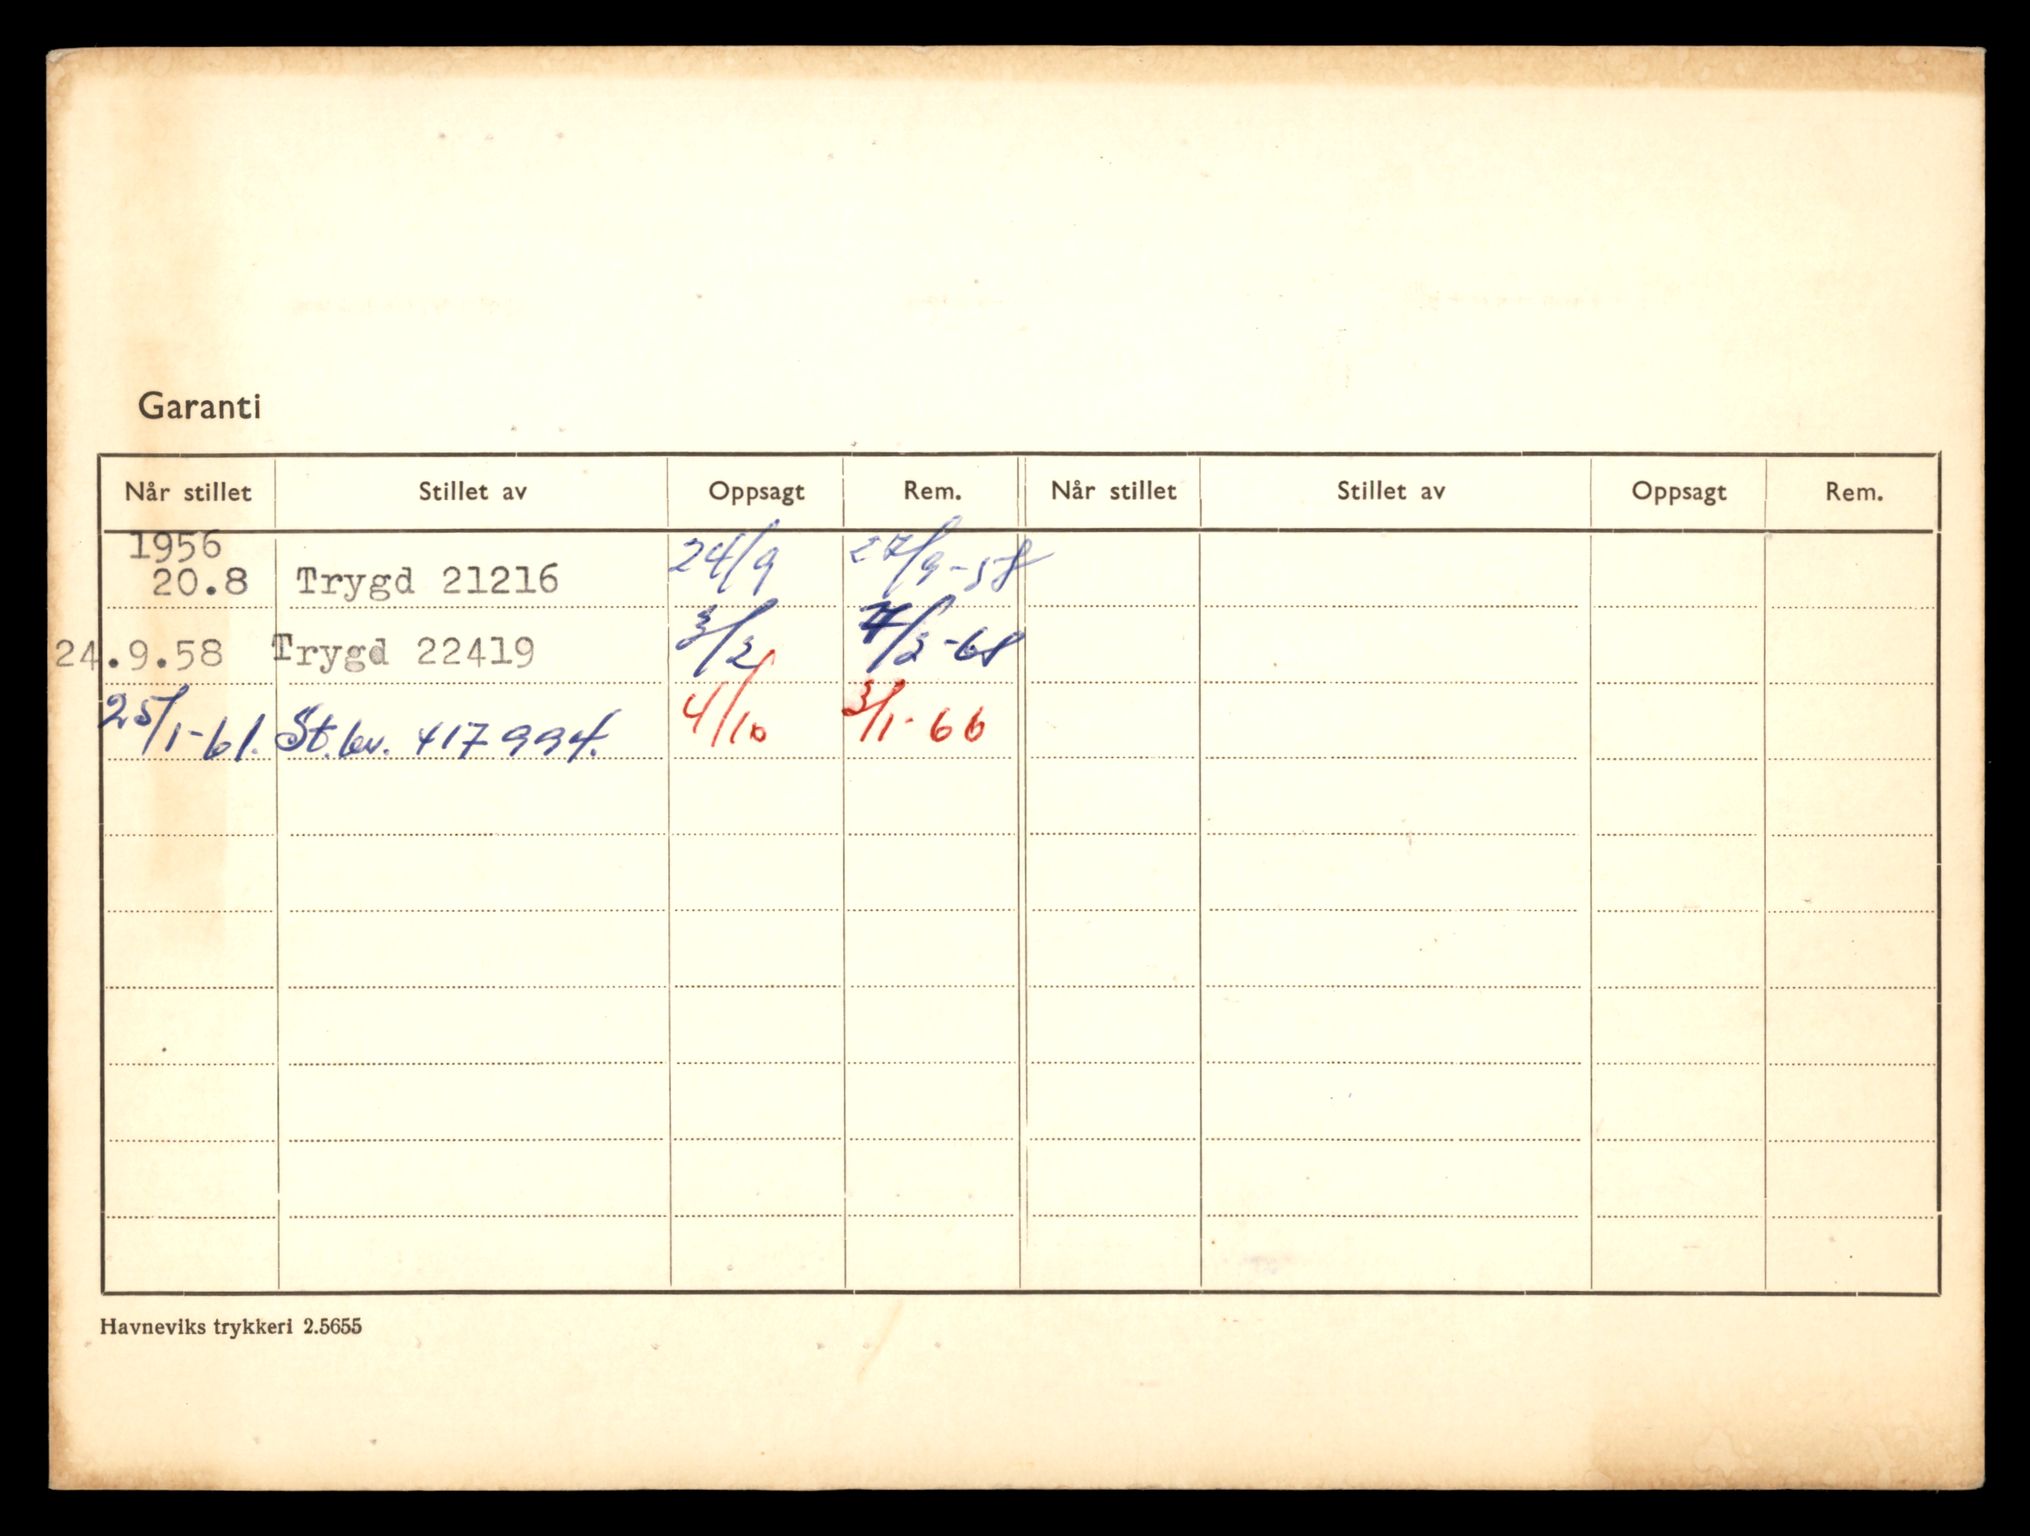 Garanti
Når stillet Stillet av Oppsagt Rem. Når stillet Stillet av Oppsagt Rem.
1956
20.8 Trygd 21216 24/9 27/9-58
24.9.58 Trygd 22419 3/2 7/2-61
25/1-61. St.br. 417994. 4/10 3/1-66
Havneviks trykkeri 2.5655